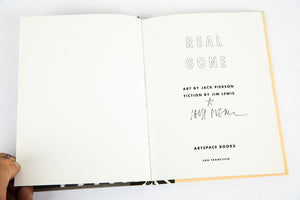 REAL
GONE
ART BY JACK PIERSON
FICTION BY JIM LEWIS
Jack Pierson
ARTSPACE BOOKS
SAN FRANCISCO